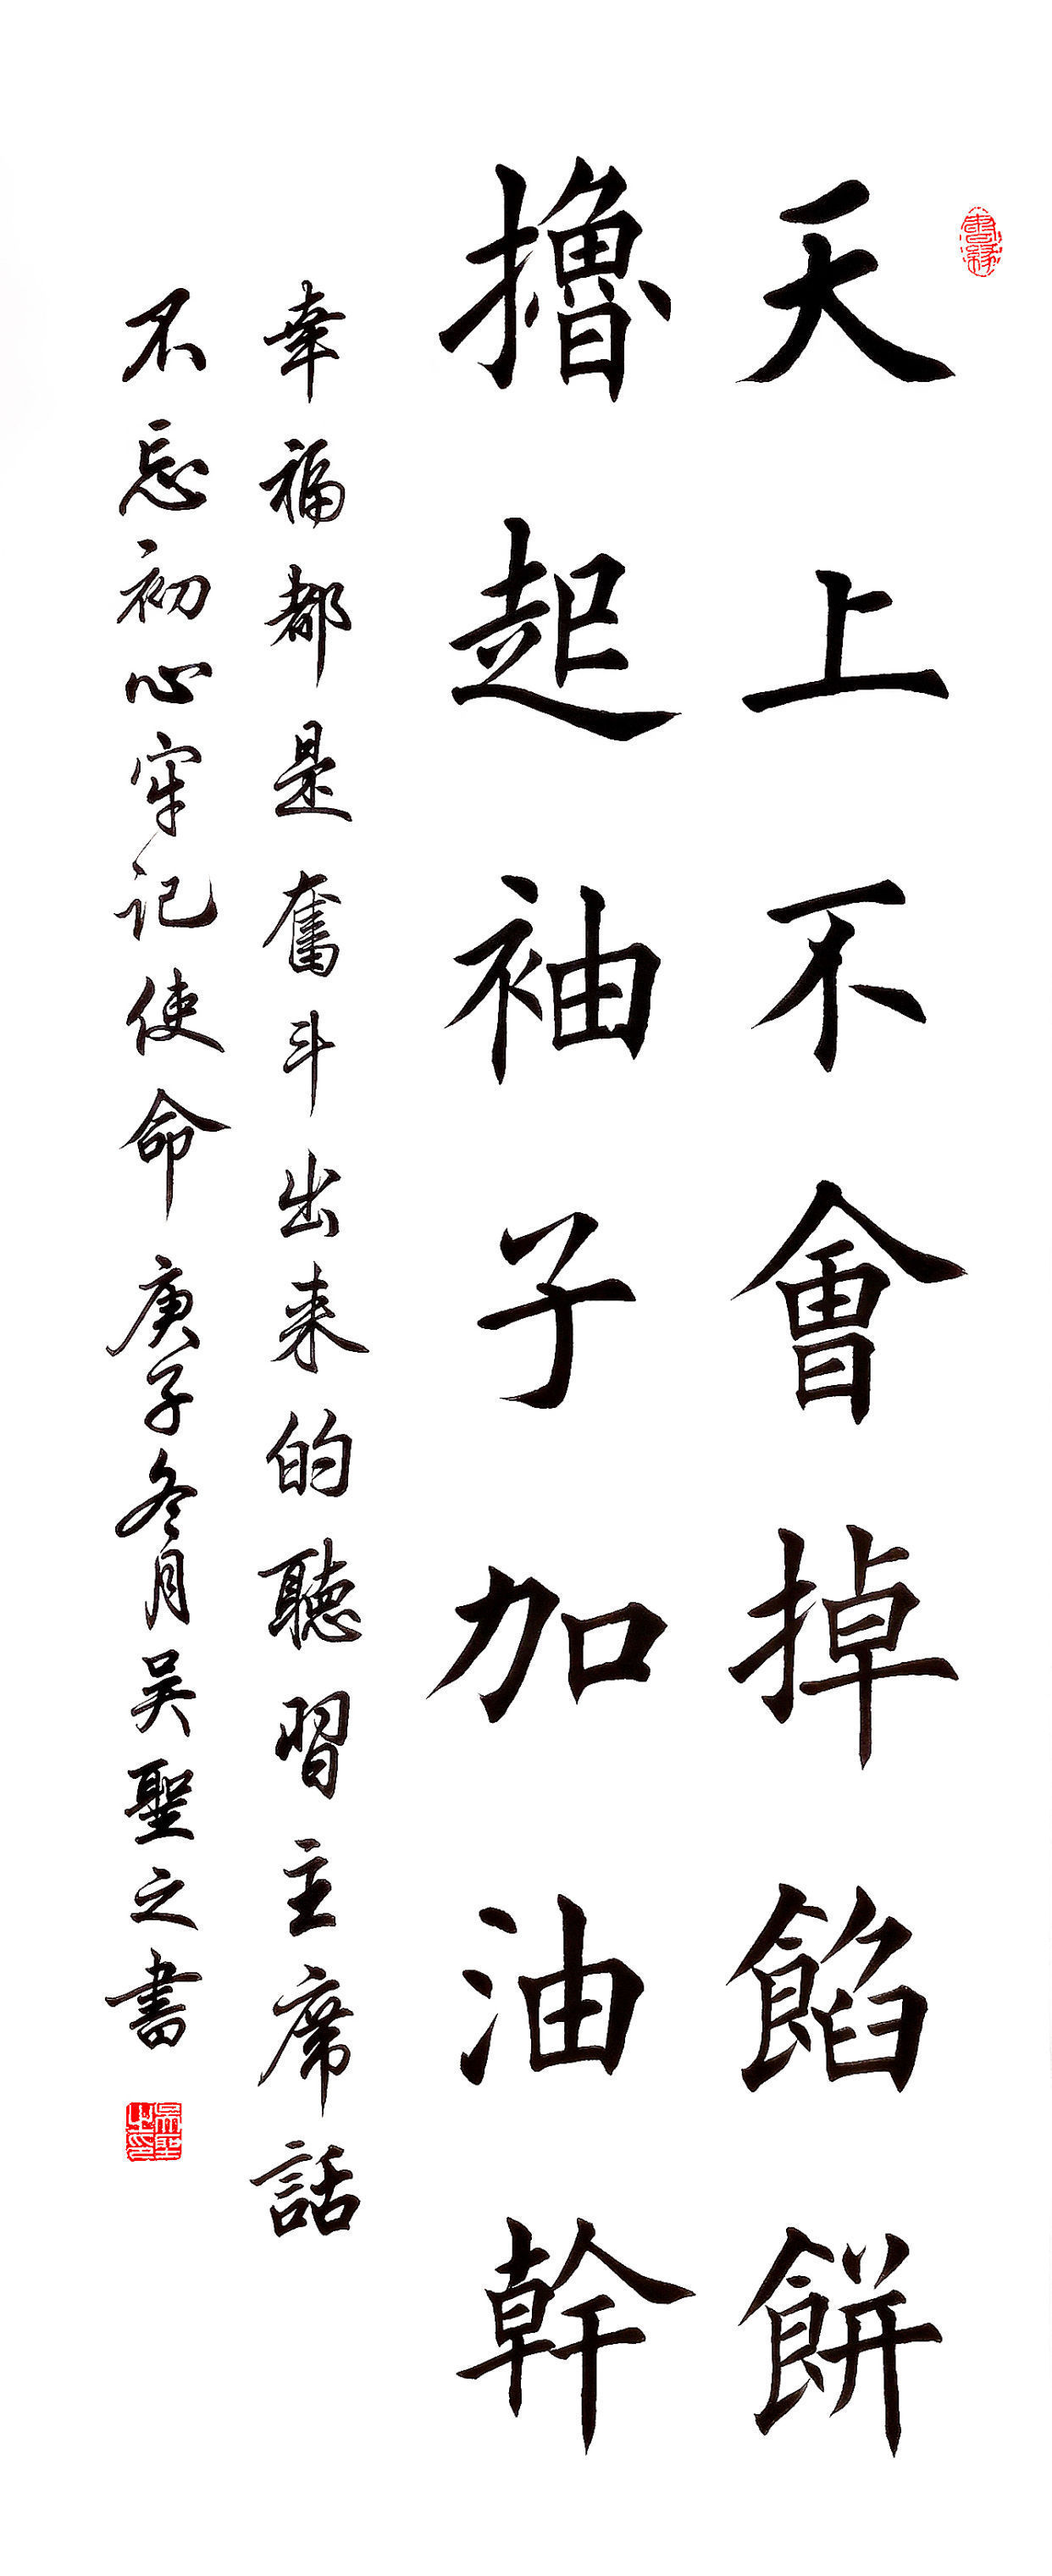 書緣
天上不會掉餡餅
擼起袖子加油幹
幸福都是奮斗出来的聽習主席話
不忘初心牢记使命 庚子冬月吴聖之書
吴聖之印